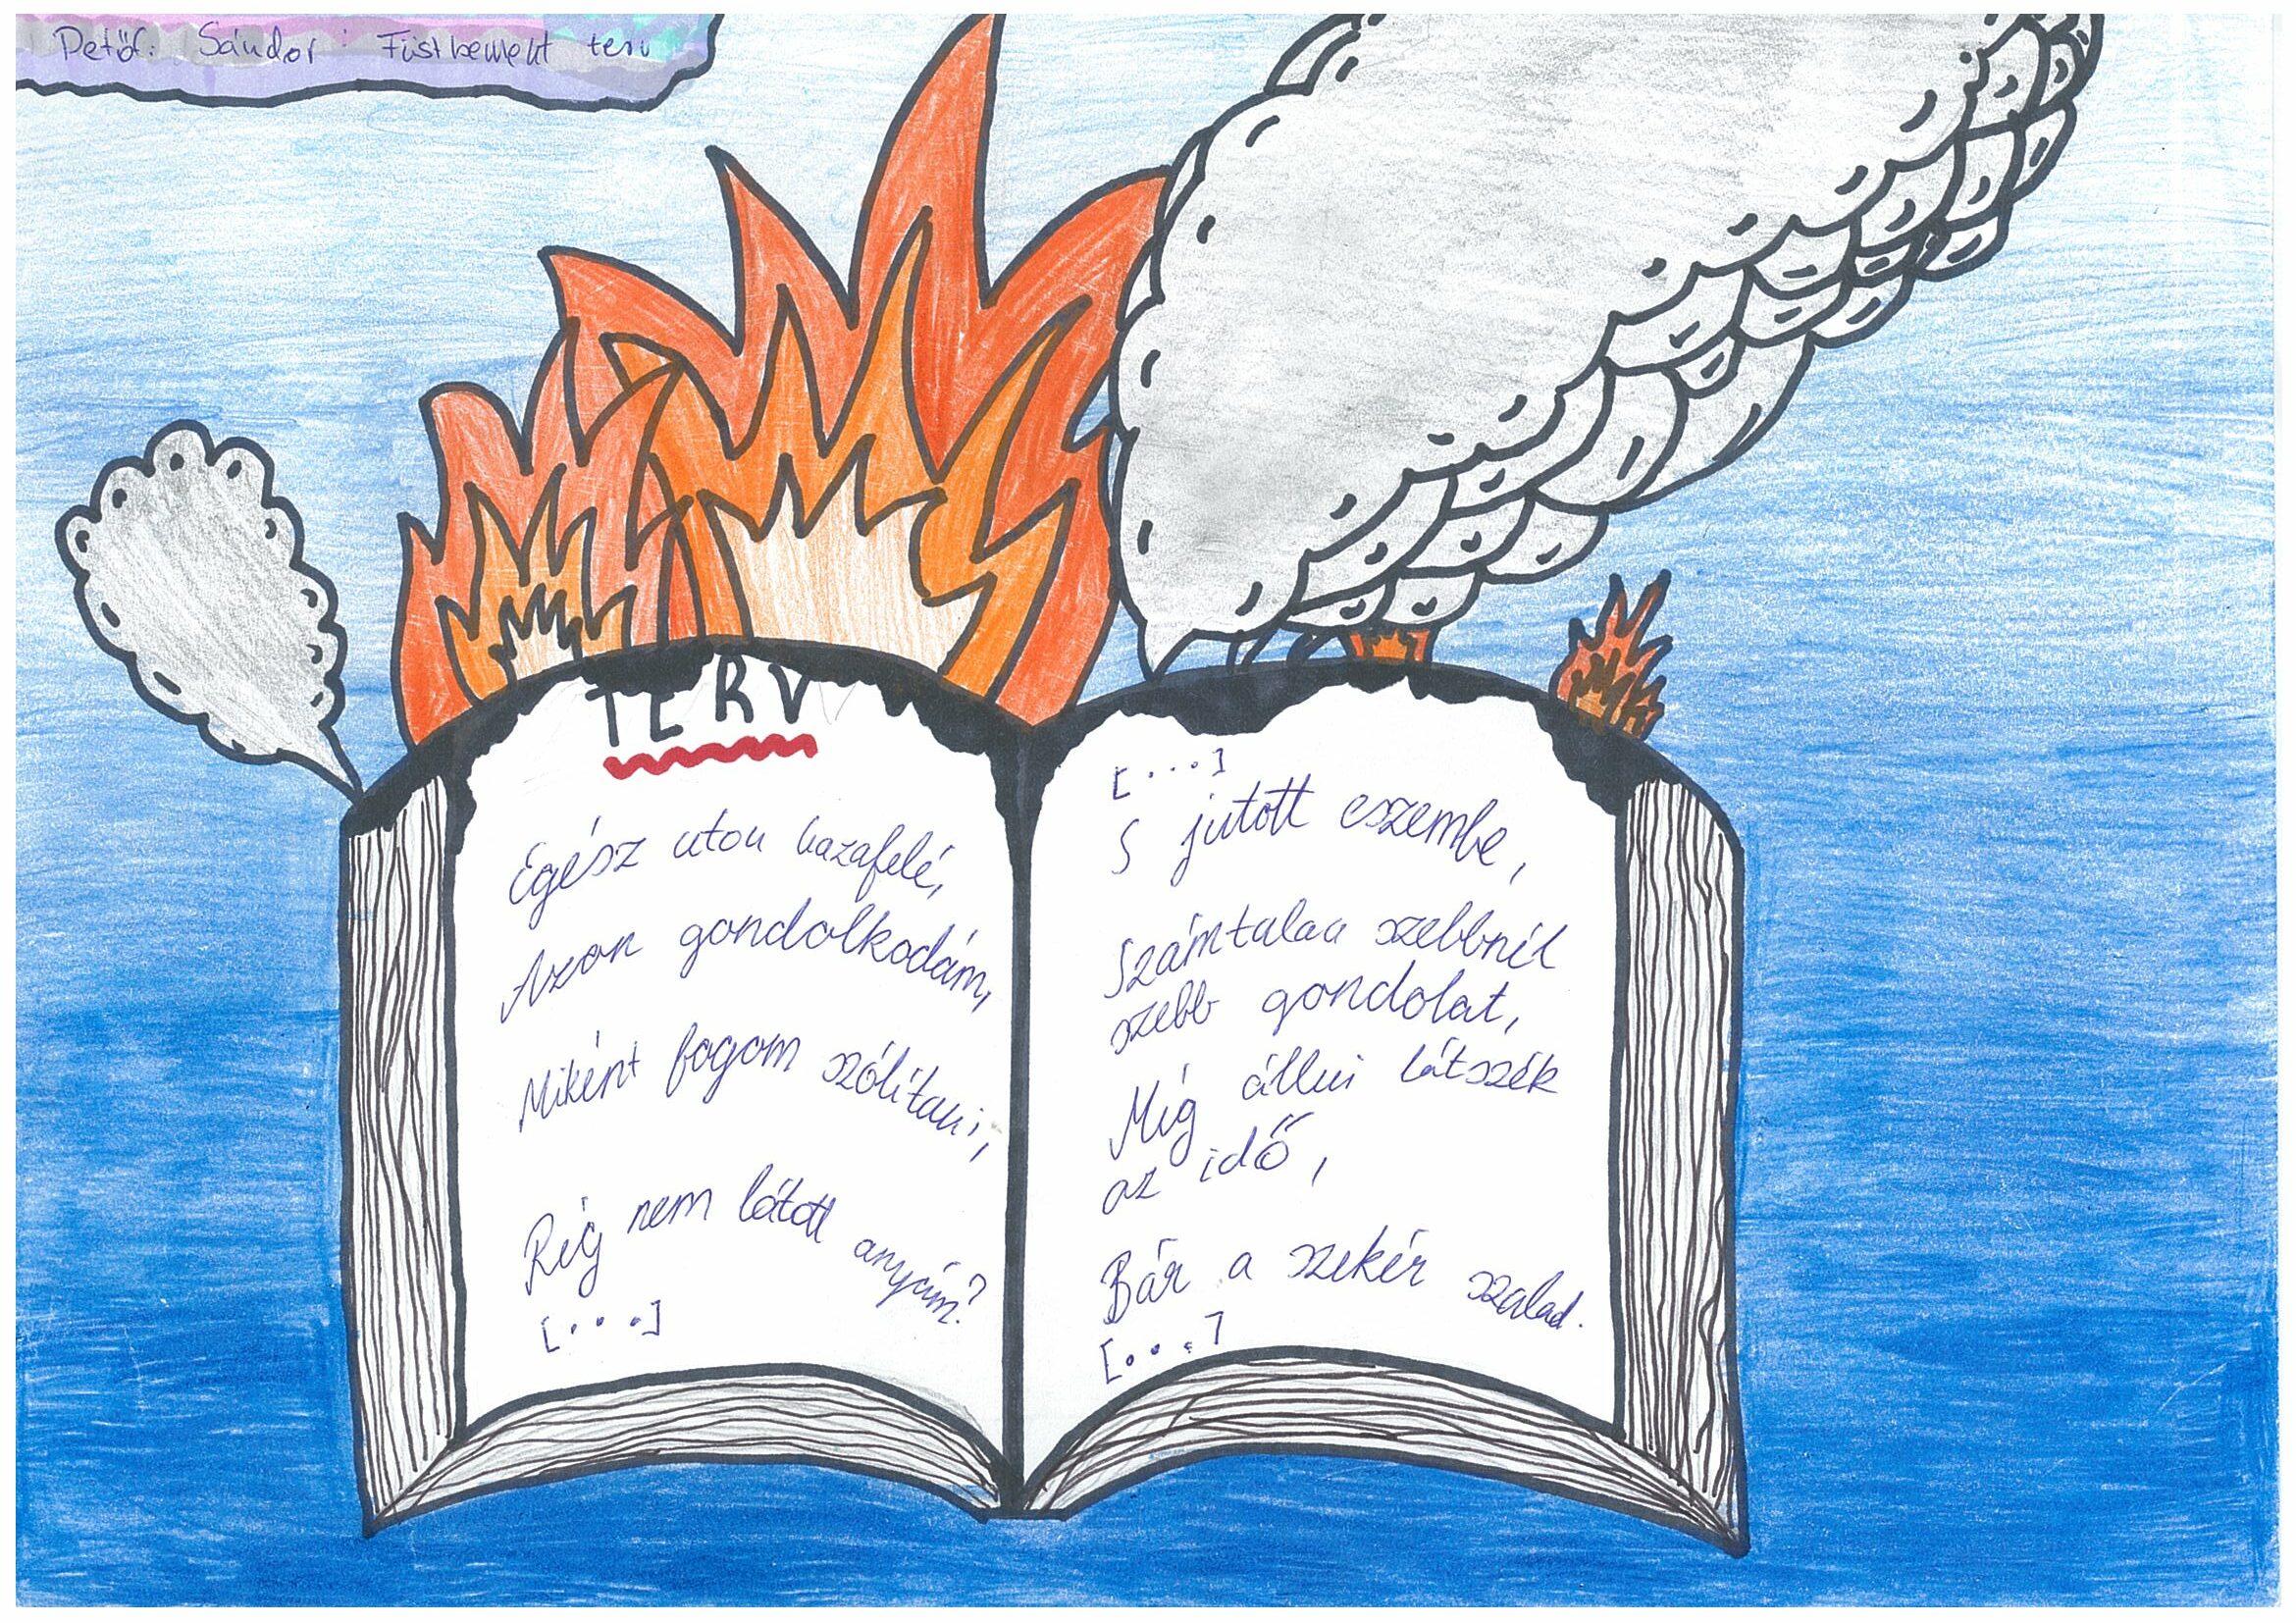 Petőfi Sándor: Füstbement terv
TERV
Egész uton hazafelé,
Azon gondolkodám,
Miként fogom szólítani,
Rég nem látott anyám?
[...]
[...]
S jutott eszembe,
Számtalan szebbnél
szebb gondolat,
Míg állni látszék
az idő,
Bár a szekér szalad.
[...]